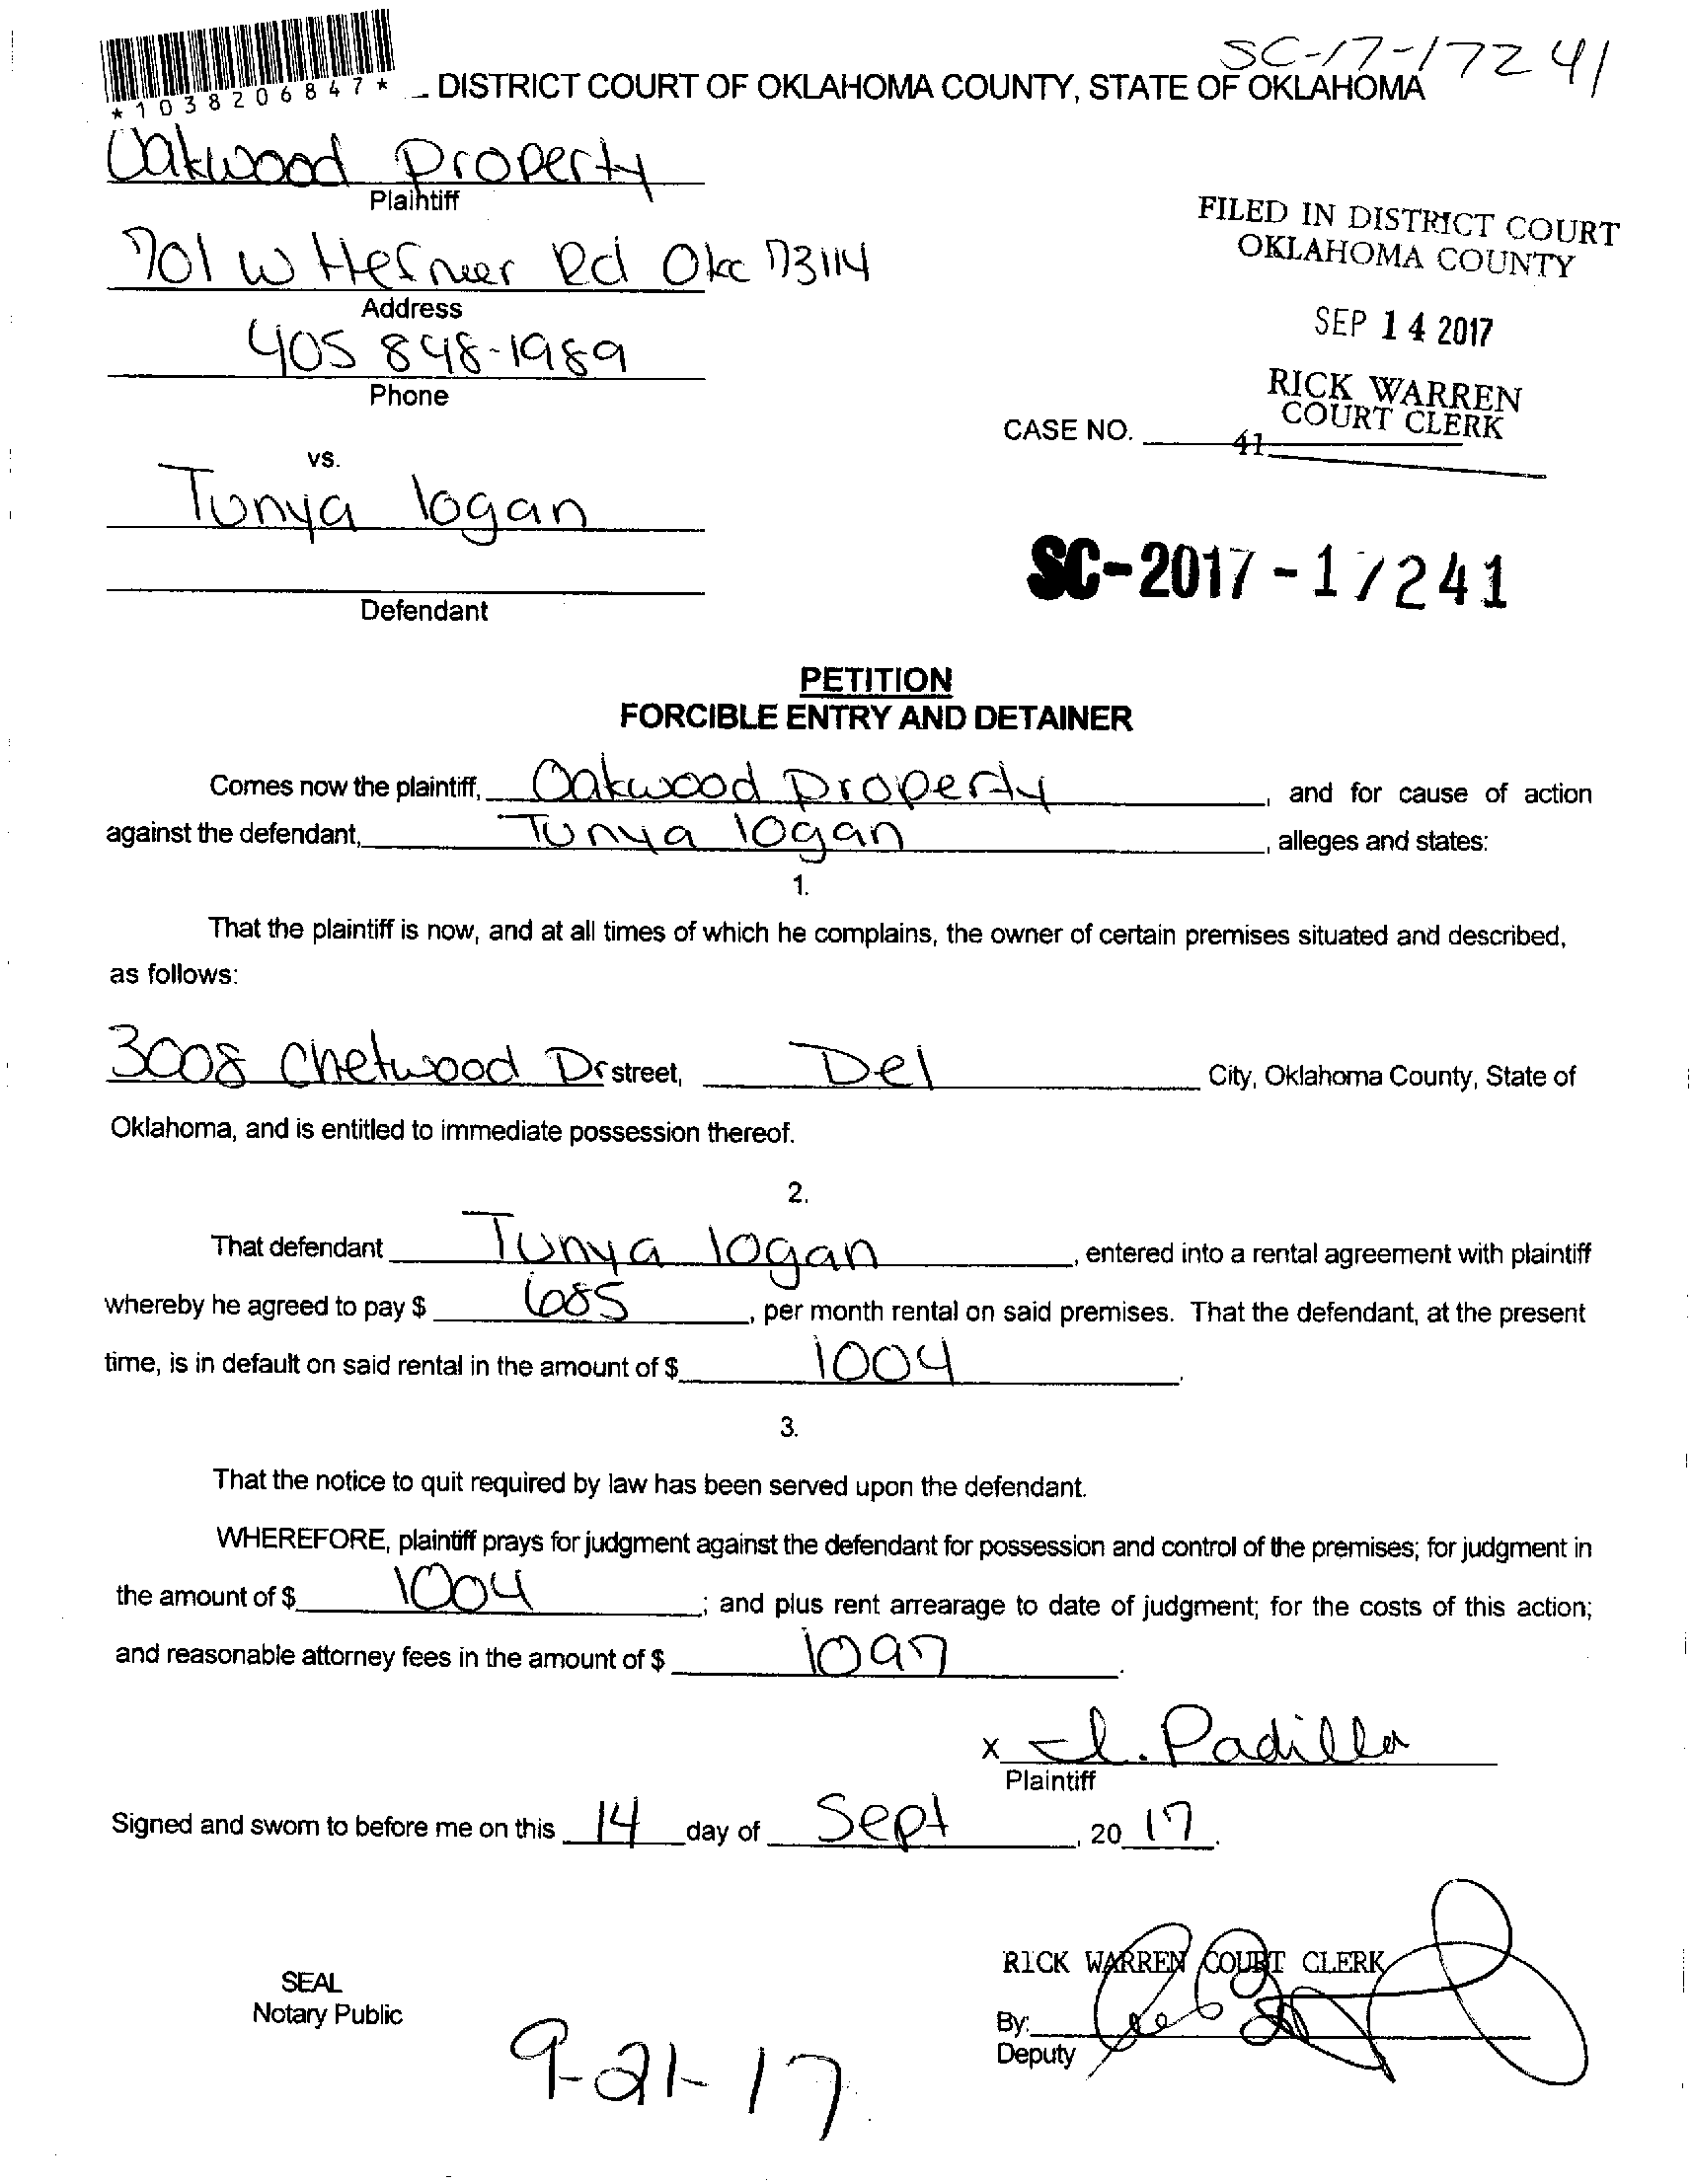 SC-17-17241
*1038206847*
DISTRICT COURT OF OKLAHOMA COUNTY, STATE OF OKLAHOMA
Oakwood Property
Plaintiff
701 W Hefner Rd Okc 73114
Address
405 848-1989
Phone
FILED IN DISTRICT COURT
OKLAHOMA COUNTY
SEP 14 2017
RICK WARREN
COURT CLERK
CASE NO.
41
vs.
Tunya logan
Defendant
SC-2017-17241
PETITION
FORCIBLE ENTRY AND DETAINER
Comes now the plaintiff, Oakwood Property, and for cause of action
against the defendant, Tunya logan, alleges and states:
1.
That the plaintiff is now, and at all times of which he complains, the owner of certain premises situated and described,
as follows:
3008 Chetwood Dr street, Del City, Oklahoma County, State of
Oklahoma, and is entitled to immediate possession thereof.
2.
That defendant Tunya logan, entered into a rental agreement with plaintiff
whereby he agreed to pay $ 685, per month rental on said premises. That the defendant, at the present
time, is in default on said rental in the amount of $ 1004.
3.
That the notice to quit required by law has been served upon the defendant.
WHEREFORE, plaintiff prays for judgment against the defendant for possession and control of the premises; for judgment in
the amount of $ 1004; and plus rent arrearage to date of judgment; for the costs of this action;
and reasonable attorney fees in the amount of $ 1097.
x I. Padilla
Plaintiff
Signed and sworn to before me on this 14 day of Sept, 2017.
SEAL
Notary Public
RICK WARREN COURT CLERK
By:
Deputy
9-21-17